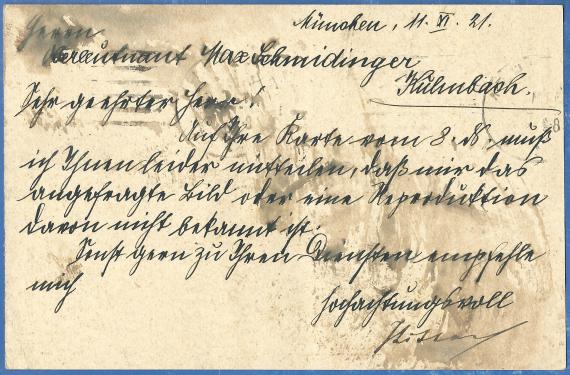 München, 11. VI. 21.
Herrn
Oberleutnant Max Schmidinger
Kulmbach.
Sehr geehrter Herr!
Auf Ihre Karte vom 8. ds. muß
ich Ihnen leider mitteilen, daß mir das
angefragte Bild oder eine Reproduktion
davon nicht bekannt ist.
Sonst gern zu Ihren Diensten empfehle
mich
hochachtungsvoll